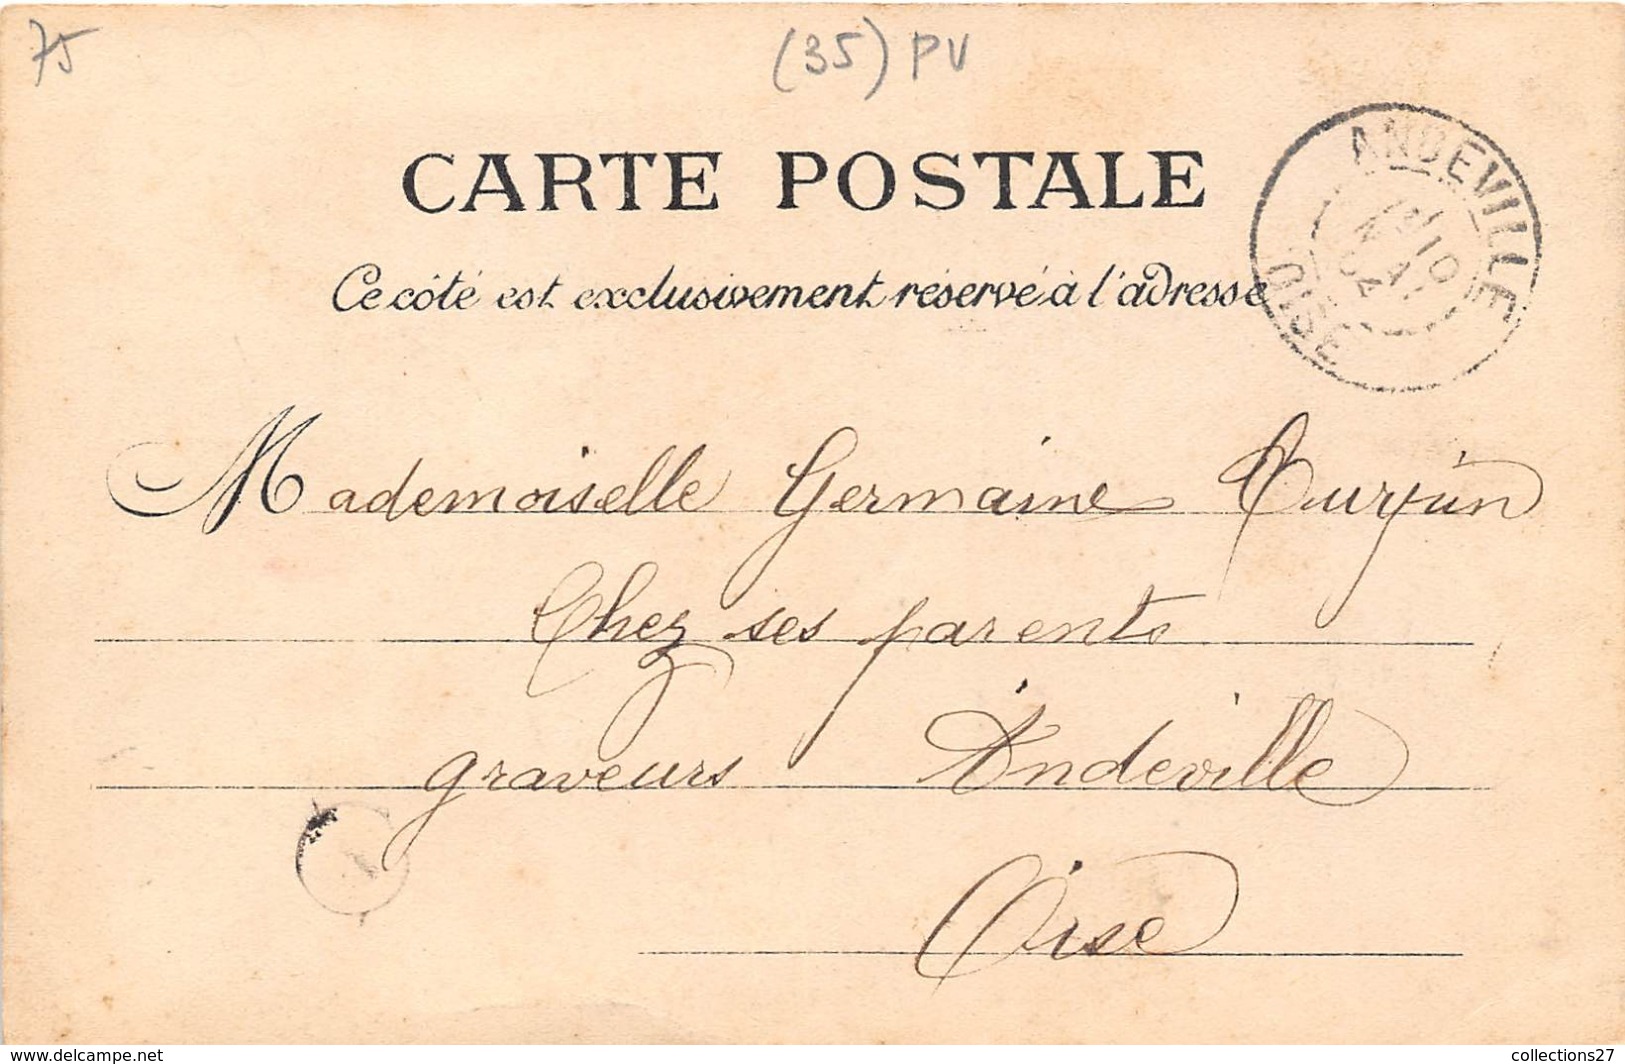 75
(35) PV
CARTE POSTALE
Ce côté est exclusivement réservé à l'adresse
ANDEVILLE
OISE
Mademoiselle Germaine
Chez ses parents
graveurs Andeville
Oise
www.delcampe.net
collections27